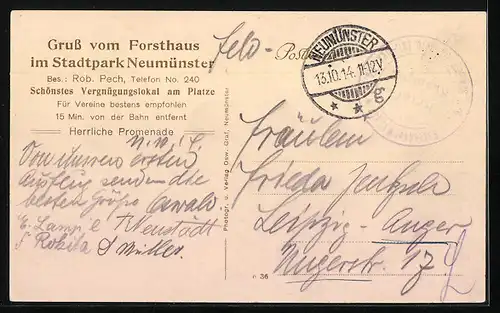 Gruß vom Forsthaus
im Stadtpark Neumünster
Bes.: Rob. Pech, Telefon No. 240
Schönstes Vergnügungslokal am Platze
Für Vereine bestens empfohlen
15 Min. von der Bahn entfernt
Herrliche Promenade
Von unserem ersten
Ausflug senden die
besten Grüße Oswald.
E. Lampe Neustadt
Müller.
Photogr. u. Verlag Osw. Graf, Neumünster.
Feld-
Post
NEUMÜNSTER
13.10.14. 11-12V
* * g
Fräulein
Frieda
Leipzig-Anger
17
n 36